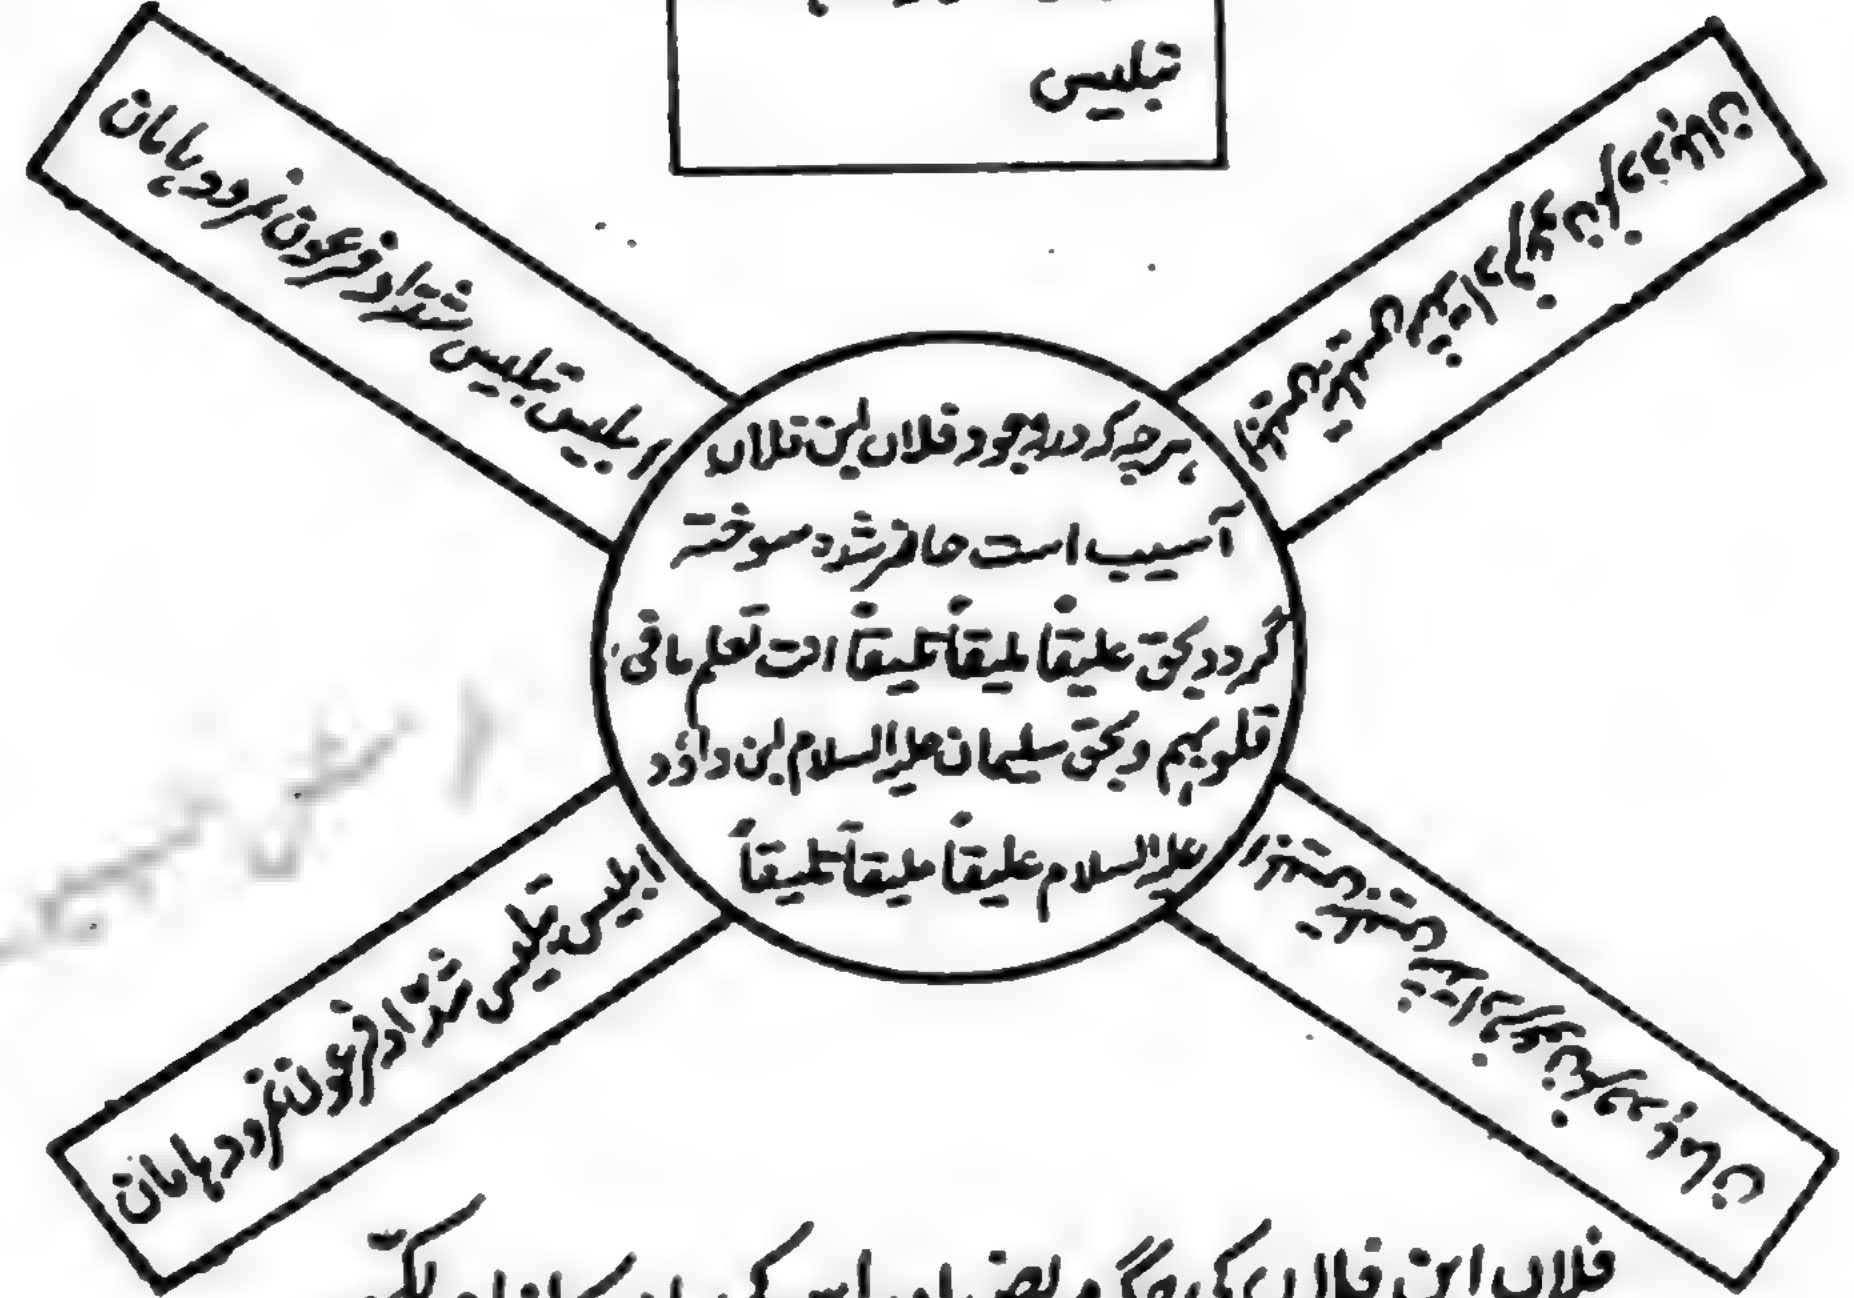 تبلیس
ابلیس تبلیس شدّاد فرعون نمرود ہامان
ابلیس تبلیس شدّاد فرعون نمرود ہامان
ہرچہ کہ در وجود فلاں ابن فلاں
آسیب است حاضر شدہ سوختہ
گردد بحق علیقاً ملیقاً تلیقاً انت تعلم ما فی
قلوبہم و بحق سلیمان علیہ السلام بن داؤد
علیہ السلام علیقاً ملیقاً تلیقاً
ابلیس تبلیس شدّاد فرعون نمرود ہامان
ابلیس تبلیس شدّاد فرعون نمرود ہامان
فلاں ابن فلاں کی جگہ مریض اور اس کی ماں کا نام لکھیں